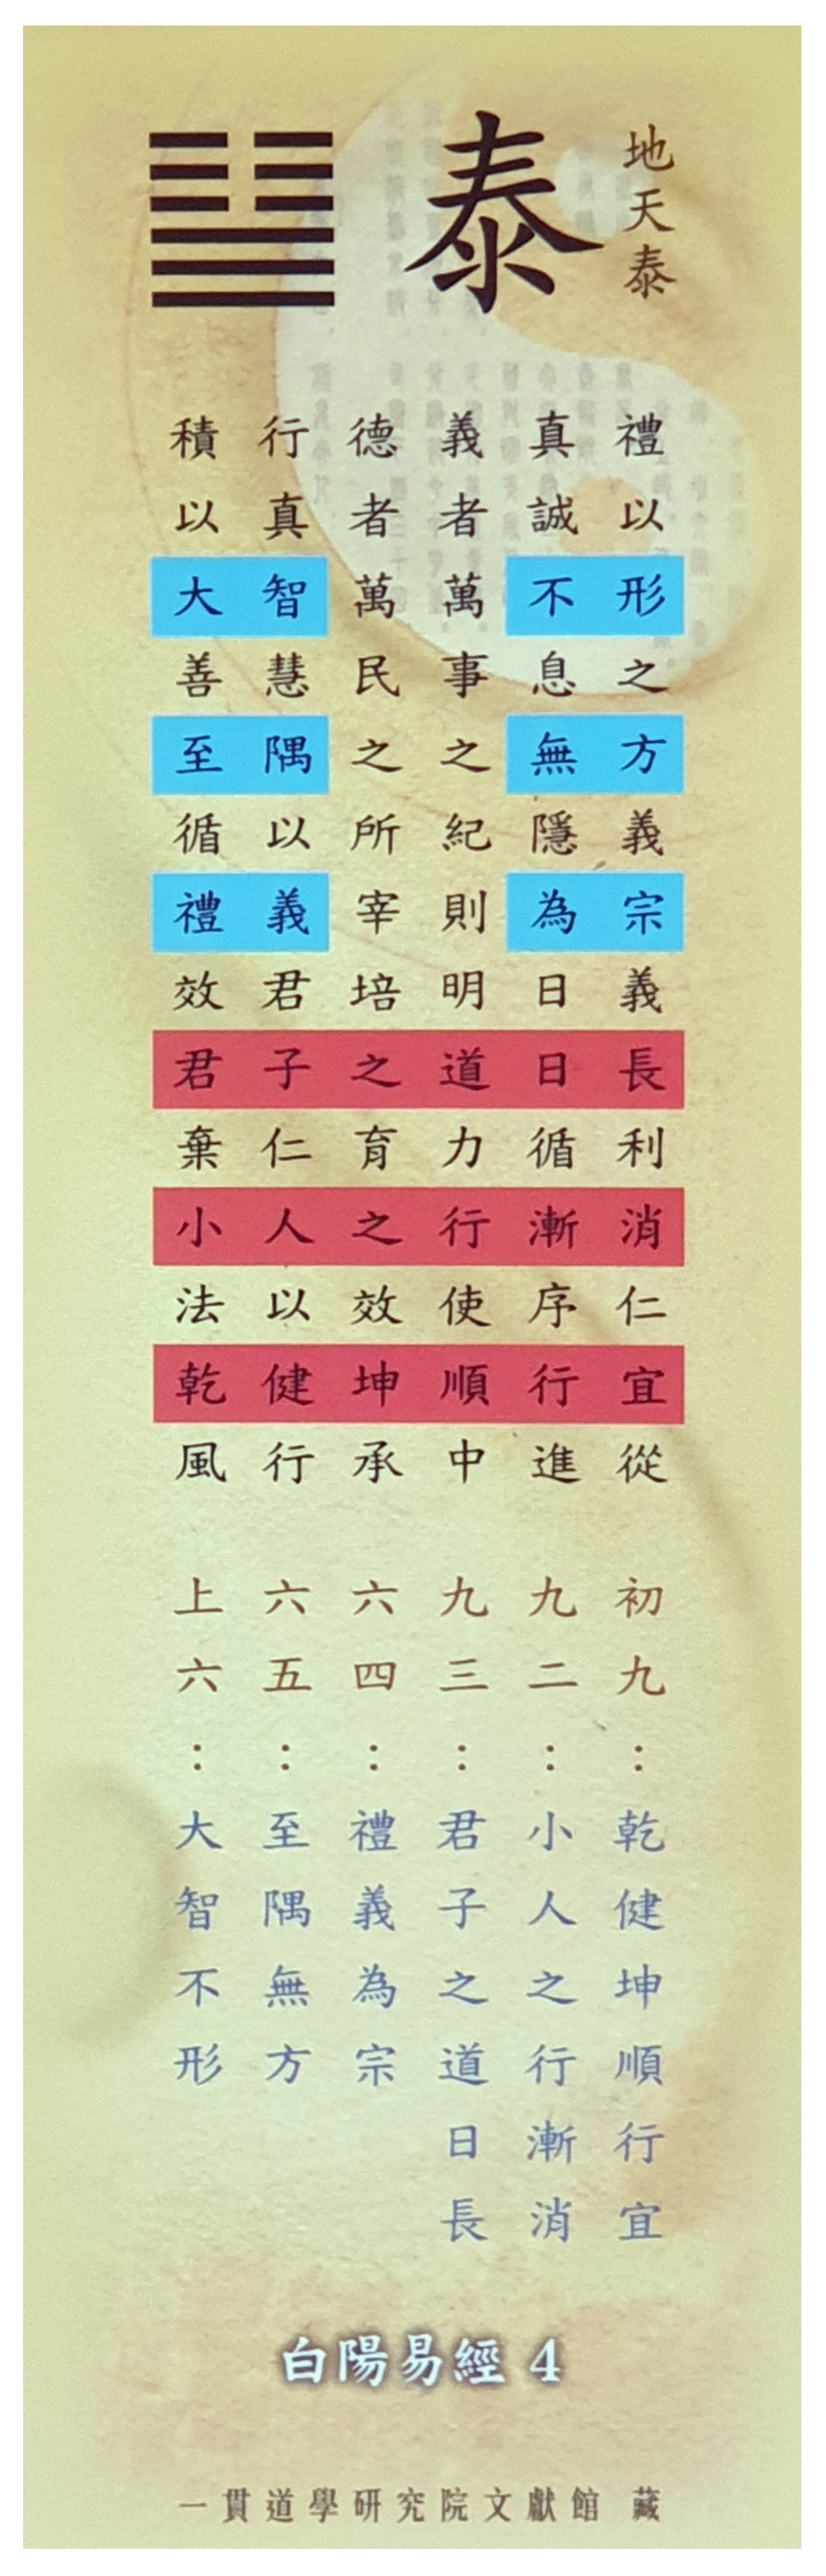 地天泰
泰
禮以形之方義宗義長利消仁宜從
真誠不息無隱為日日循漸序行進
義者萬事之紀則明道力行使順中
德者萬民之所宰培之育之效坤承
行真智慧隅以義君子仁人以健行
積以大善至循禮效君棄小法乾風
初九：乾健坤順行宜
九二：小人之行漸消
九三：君子之道日長
六四：禮義為宗
六五：至隅無方
上六：大智不形
白陽易經 4
一貫道學研究院文獻館 藏